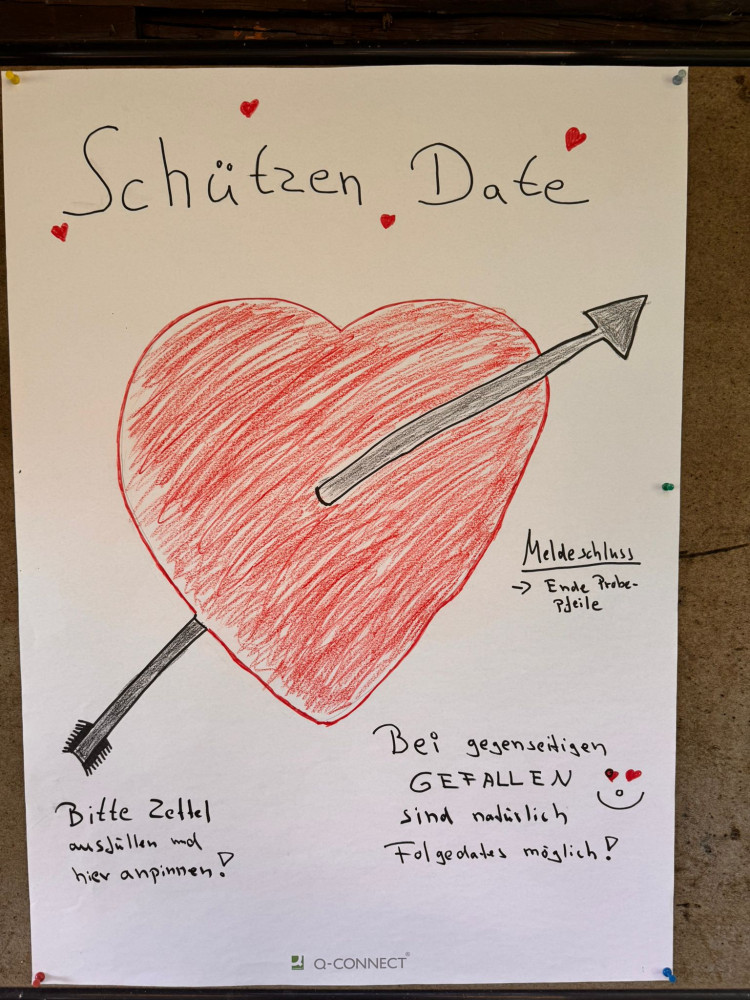 Schützen Date
Meldeschluss
→ Ende Probe-
Pfeile
Bei gegenseitigen
GEFALLEN
sind natürlich
Folgedates möglich!
Bitte Zettel
ausfüllen und
hier anpinnen!
Q-CONNECT®